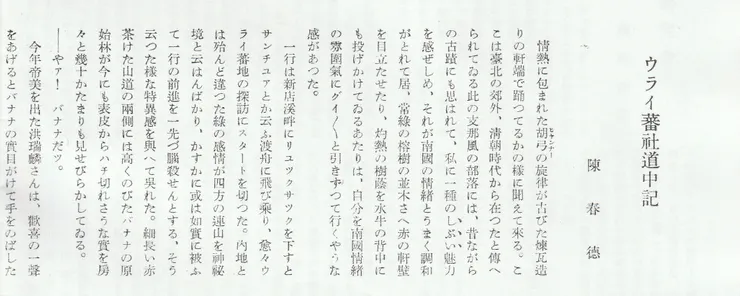 ウライ蕃社道中記
陳春德
情熱に包まれた胡弓の旋律が古びた煉瓦造
りの軒端で踊つてるかの樣に聞えて來る。こ
こは臺北の郊外、清朝時代から在つたと傳へ
られてゐる此の支那風の部落には、昔ながら
の古蹟にも思はれて、私に一種のしぶい魅力
を感ぜしめ、それが南國の情緒とうまく調和
がとれて居、常綠の榕樹の並木さへ赤の軒壁
を目立たせたり、灼熱の樹蔭を水牛の背中に
も投げかけてゐるあたりは、自分を南國情緒
の雰圍氣にグイ〳〵と引きずつて行くやうな
感があつた。
一行は新店溪畔にリユツクサツクを下すと
サンチユアとか云ふ渡舟に飛び乘り、愈々ウ
ライ蕃地の探訪にスタートを切つた。內地と
は殆んど違つた綠の感情が四方の連山を神祕
境と云はんばかり、かすかに或は如實に被ふ
て一行の前進を一先づ腦殺せんとする、そう
云つた樣な特異感を與へて吳れた。細長い赤
茶けた山道の兩側には高くのびたバナナの原
始林が今にも表皮からハチ切れさうな實を房
々と幾十かたまりも見せびらかしてゐる。
――やァ！　バナナだッ。
今年帝美を出た洪瑞麟さんは、歡喜の一聲
をあげるとバナナの實目がけて手をのばした